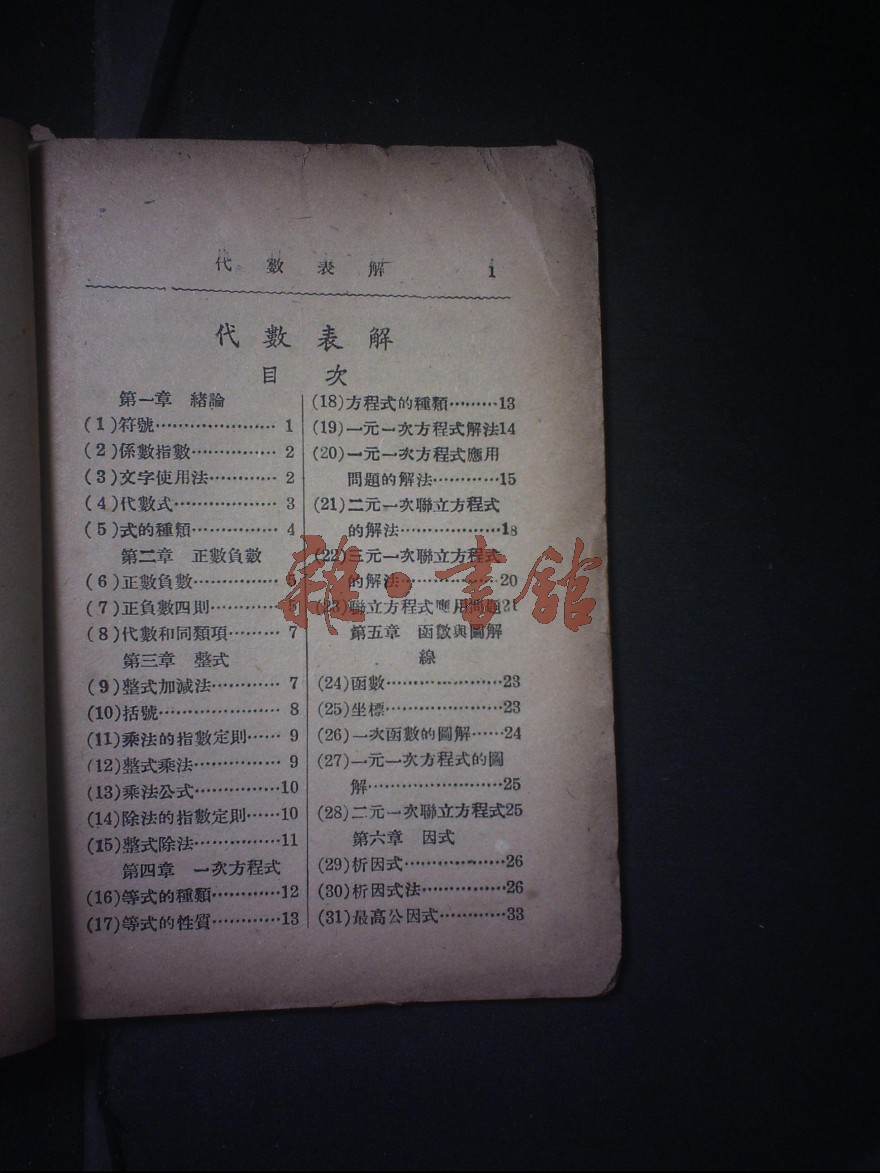 代數表解 1
代數表解
目次
第一章 緒論
(1)符號………………… 1
(2)係數指數…………… 2
(3)文字使用法………… 2
(4)代數式……………… 3
(5)式的種類…………… 4
第二章 正數負數
(6)正數負數…………… 5
(7)正負數四則………… 5
(8)代數和同類項……… 7
第三章 整式
(9)整式加減法………… 7
(10)括號………………… 8
(11)乘法的指數定則…… 9
(12)整式乘法…………… 9
(13)乘法公式……………10
(14)除法的指數定則……10
(15)整式除法……………11
第四章 一次方程式
(16)等式的種類…………12
(17)等式的性質…………13
(18)方程式的種類………13
(19)一元一次方程式解法14
(20)一元一次方程式應用
問題的解法…………15
(21)二元一次聯立方程式
的解法………………18
(22)三元一次聯立方程式
的解法………………20
(23)聯立方程式應用問題21
第五章 函數與圖解
線
(24)函數…………………23
(25)坐標…………………23
(26)一次函數的圖解……24
(27)一元一次方程式的圖
解……………………25
(28)二元一次聯立方程式25
第六章 因式
(29)析因式………………26
(30)析因式法……………26
(31)最高公因式…………33
雜·書館